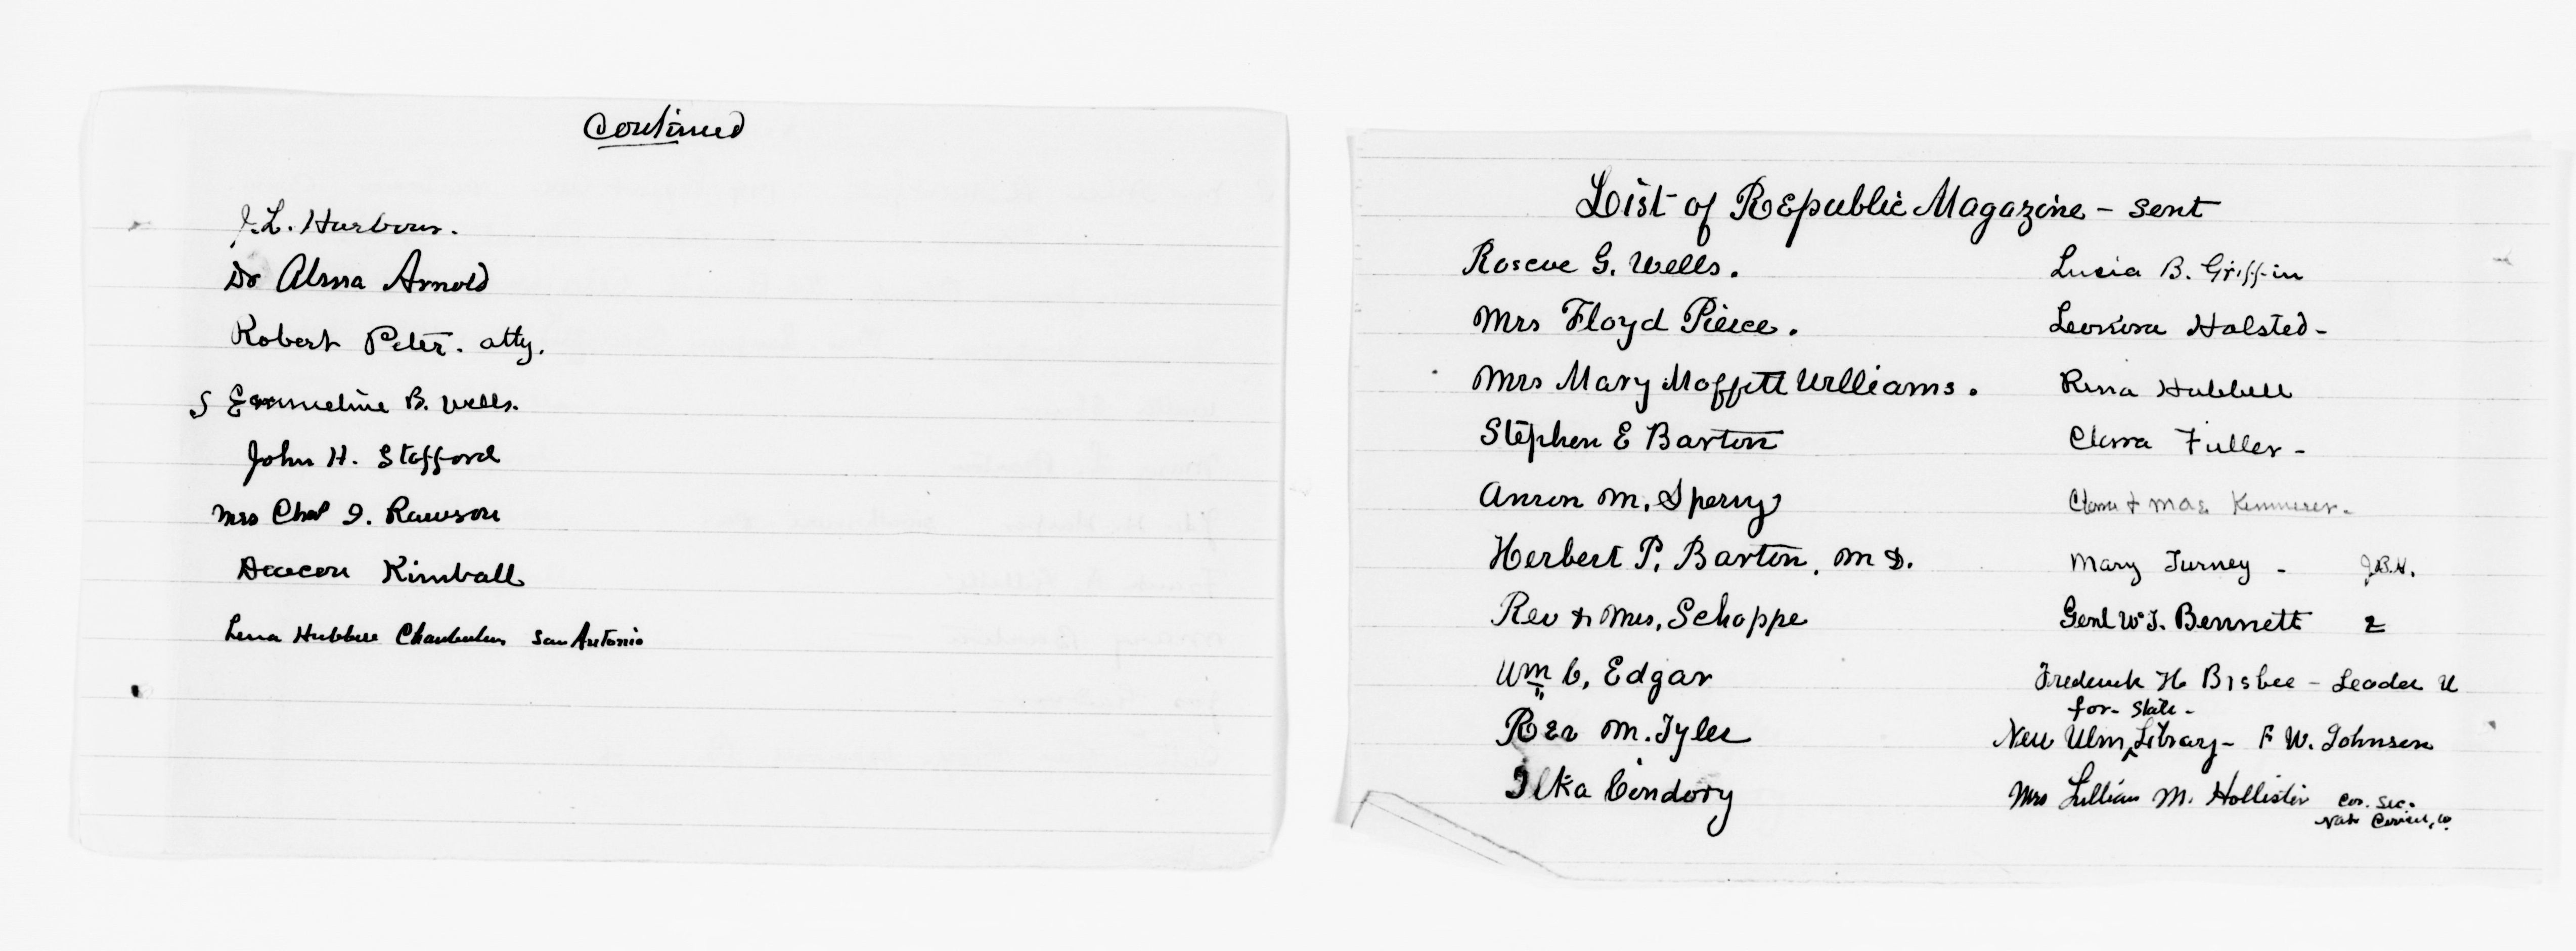 Continued
J. L. Harbour.
Dr Alma Arnold
Robert Peter. atty.
S Emmeline B. Wells.
John H. Stafford
Mrs Chas I. Rawson
Deacon Kimball
Lena Hubbell Chamberlen San Antonio
List of Republic Magazine - sent
Roscoe G. Wells.
Mrs Floyd Pierce.
Mrs Mary Moffett Williams.
Stephen E Barton
M. Sperry
Herbert P. Barton, M D.
Rev & Mrs, Schoppe
Wm C, Edgar
Rev M. Tyler
Ilka Condory
Lucia B. Griffin
Leonora Halsted -
Rena Hubbell
Clara Fuller -
Clara & Mae Kemmerer -
Mary Turney - J.B.H.
Genl W. J. Bennett 2
Frederick H Bisbee - Leader U
for - State -
New Ulm Library - F W. Johnson
Mrs Lillian M. Hollister Cor. Sec.
Natl Council, W.